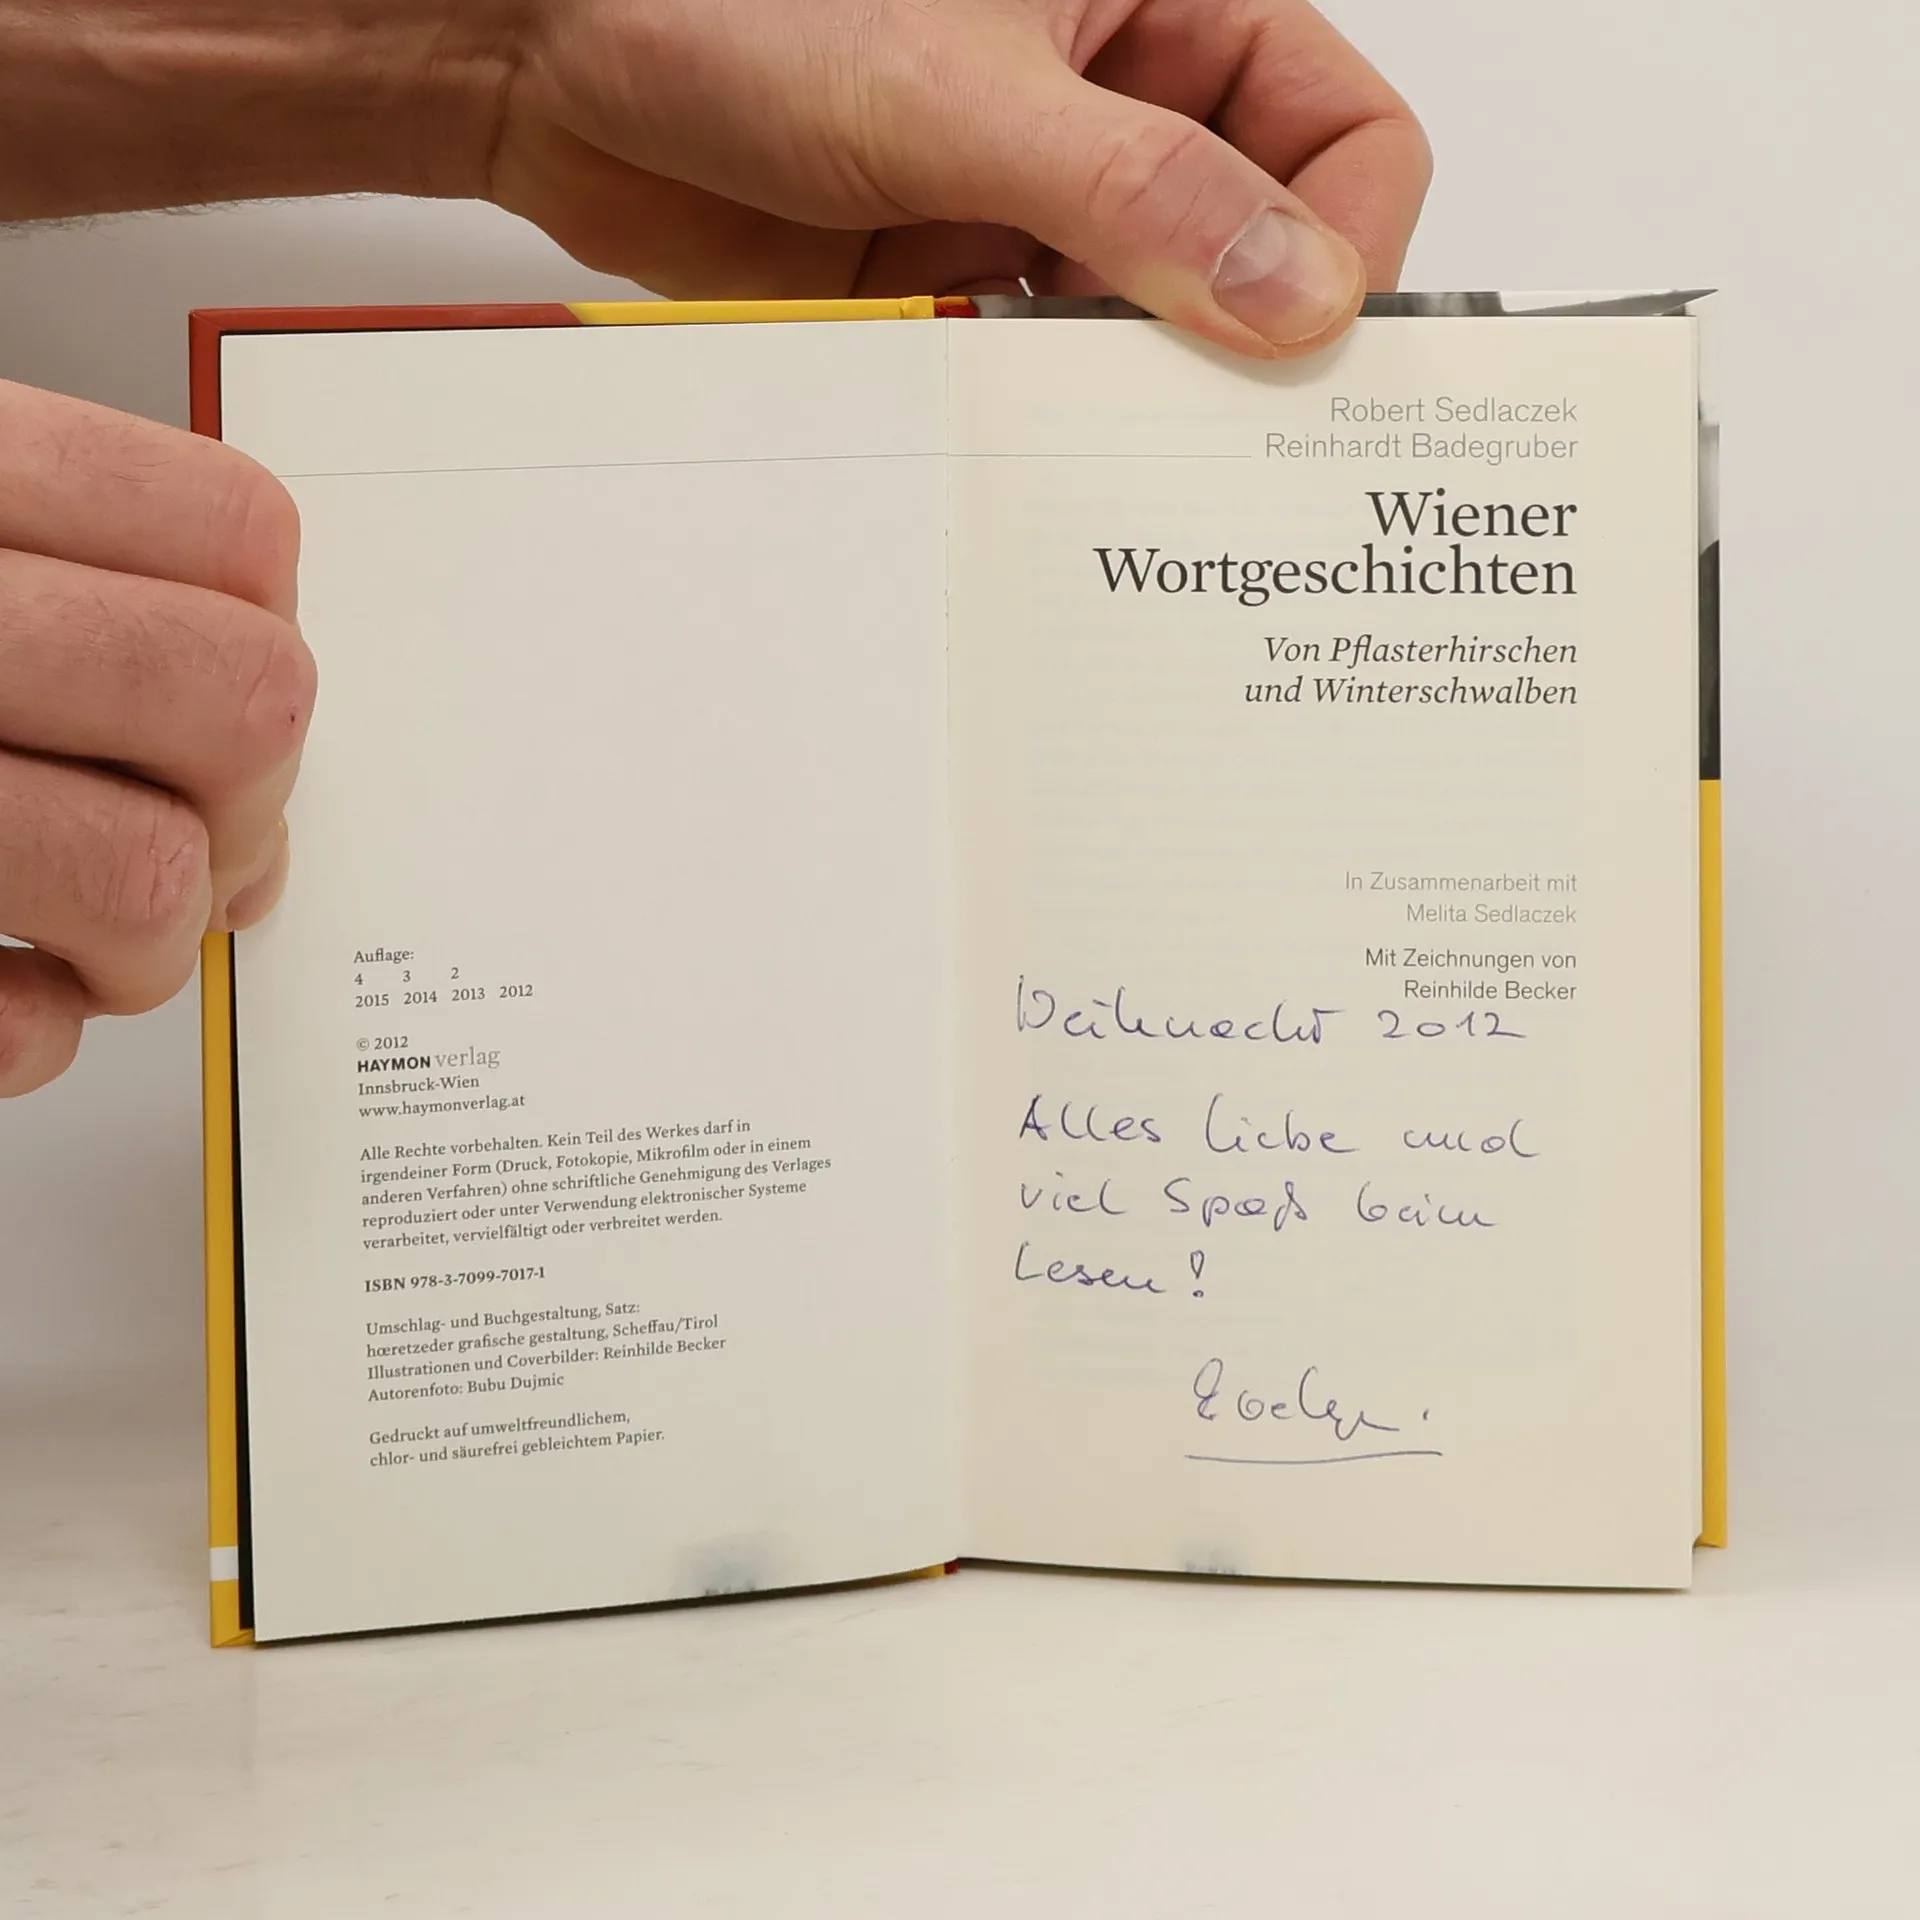 Auflage:
4 3 2
2015 2014 2013 2012
© 2012
HAYMON verlag
Innsbruck-Wien
www.haymonverlag.at
Alle Rechte vorbehalten. Kein Teil des Werkes darf in
irgendeiner Form (Druck, Fotokopie, Mikrofilm oder in einem
anderen Verfahren) ohne schriftliche Genehmigung des Verlages
reproduziert oder unter Verwendung elektronischer Systeme
verarbeitet, vervielfältigt oder verbreitet werden.
ISBN 978-3-7099-7017-1
Umschlag- und Buchgestaltung, Satz:
hœretzeder grafische gestaltung, Scheffau/Tirol
Illustrationen und Coverbilder: Reinhilde Becker
Autorenfoto: Bubu Dujmic
Gedruckt auf umweltfreundlichem,
chlor- und säurefrei gebleichtem Papier.
Robert Sedlaczek
Reinhardt Badegruber
Wiener
Wortgeschichten
Von Pflasterhirschen
und Winterschwalben
In Zusammenarbeit mit
Melita Sedlaczek
Mit Zeichnungen von
Reinhilde Becker
Weihnacht 2012
Alles Liebe und
viel Spaß beim
Lesen!